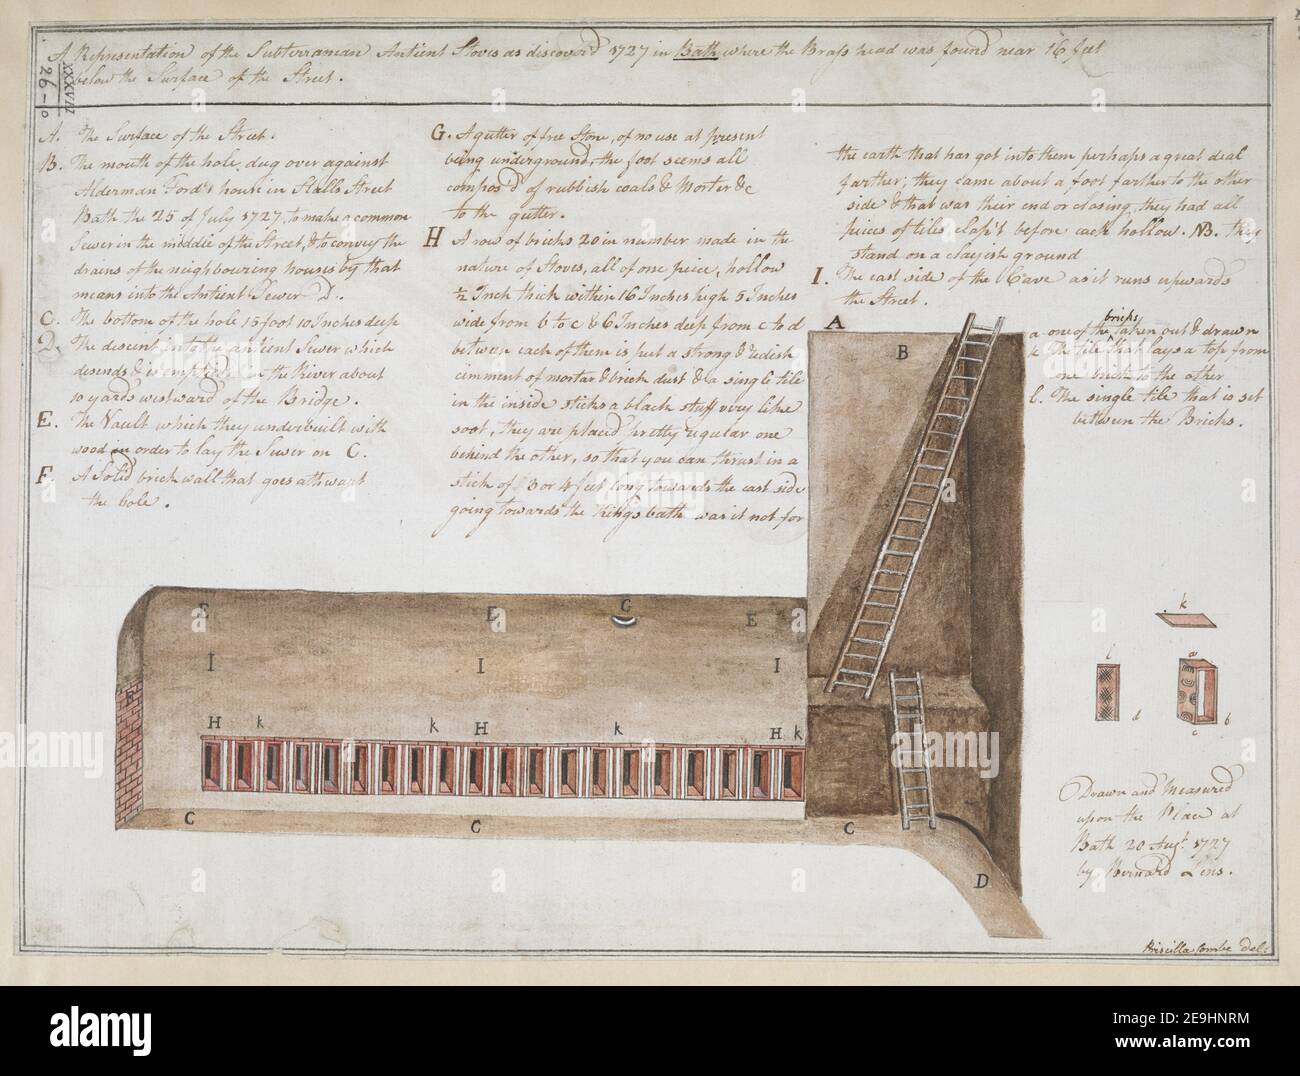 A Representation of the Subterranean Antient Stoves as discover'd 1727 in Bath where the Brass head was found near 16 feet
below the Surface of the Street.
XXXVII
26-0
A. The Surface of the Street.
B. The mouth of the hole dug over against
Alderman Ford's house in Stalls Street
Bath the 25 of July 1727, to make a common
Sewer in the middle of the Street, & to convey the
drains of the neighbouring houses by that
means into the Antient Sewer D.
C. The bottom of the hole 15 foot 10 Inches deep
D. The descent into the antient Sewer which
desends & is emptied in the River about
10 yards westward of the Bridge.
E. The Vault which they underbuilt with
wood in order to lay the Sewer on C.
F. A Solid brick wall that goes athwart
the hole.
G. A gutter of free Stone, of no use at present
being underground, the foot seems all
compos'd of rubbish coals & Morter &c
to the gutter.
H A row of bricks 20 in number made in the
nature of Stoves, all of one piece, hollow
1/2 Inch thick within 16 Inches high 5 Inches
wide from b to c & 6 Inches deep from c to d
between each of them is put a strong & redish
ciment of mortar & brick dust & a single tile
in the inside sticks a black stuff very like
soot, they are placed pretty regular one
behind the other, so that you can thrust in a
stick of 3 or 4 feet long towards the east side
going towards the King's bath was it not for
the earth that has got into them perhaps a great deal
farther; they came about a foot farther to the other
side & that was their end or closing, they had all
pieces of tiles clap't before each hollow. NB. they
stand on a clayish ground
I. The east side of the Cave as it runs upwards
the Street.
bricks
a one of the taken out & drawn
k The tile that lays a top from
one brick to the other
l. The single tile that is set
between the Bricks.
A
B
E E G E
I I I
F
H k k H k H k
C C C
D
k
l a
d b
c
Drawn and Measured
upon the Place at
Bath 20 Augt. 1727
by Bernard Lens.
Priscilla Combe del:
alamy
Image ID: 2E9HNRM
www.alamy.com